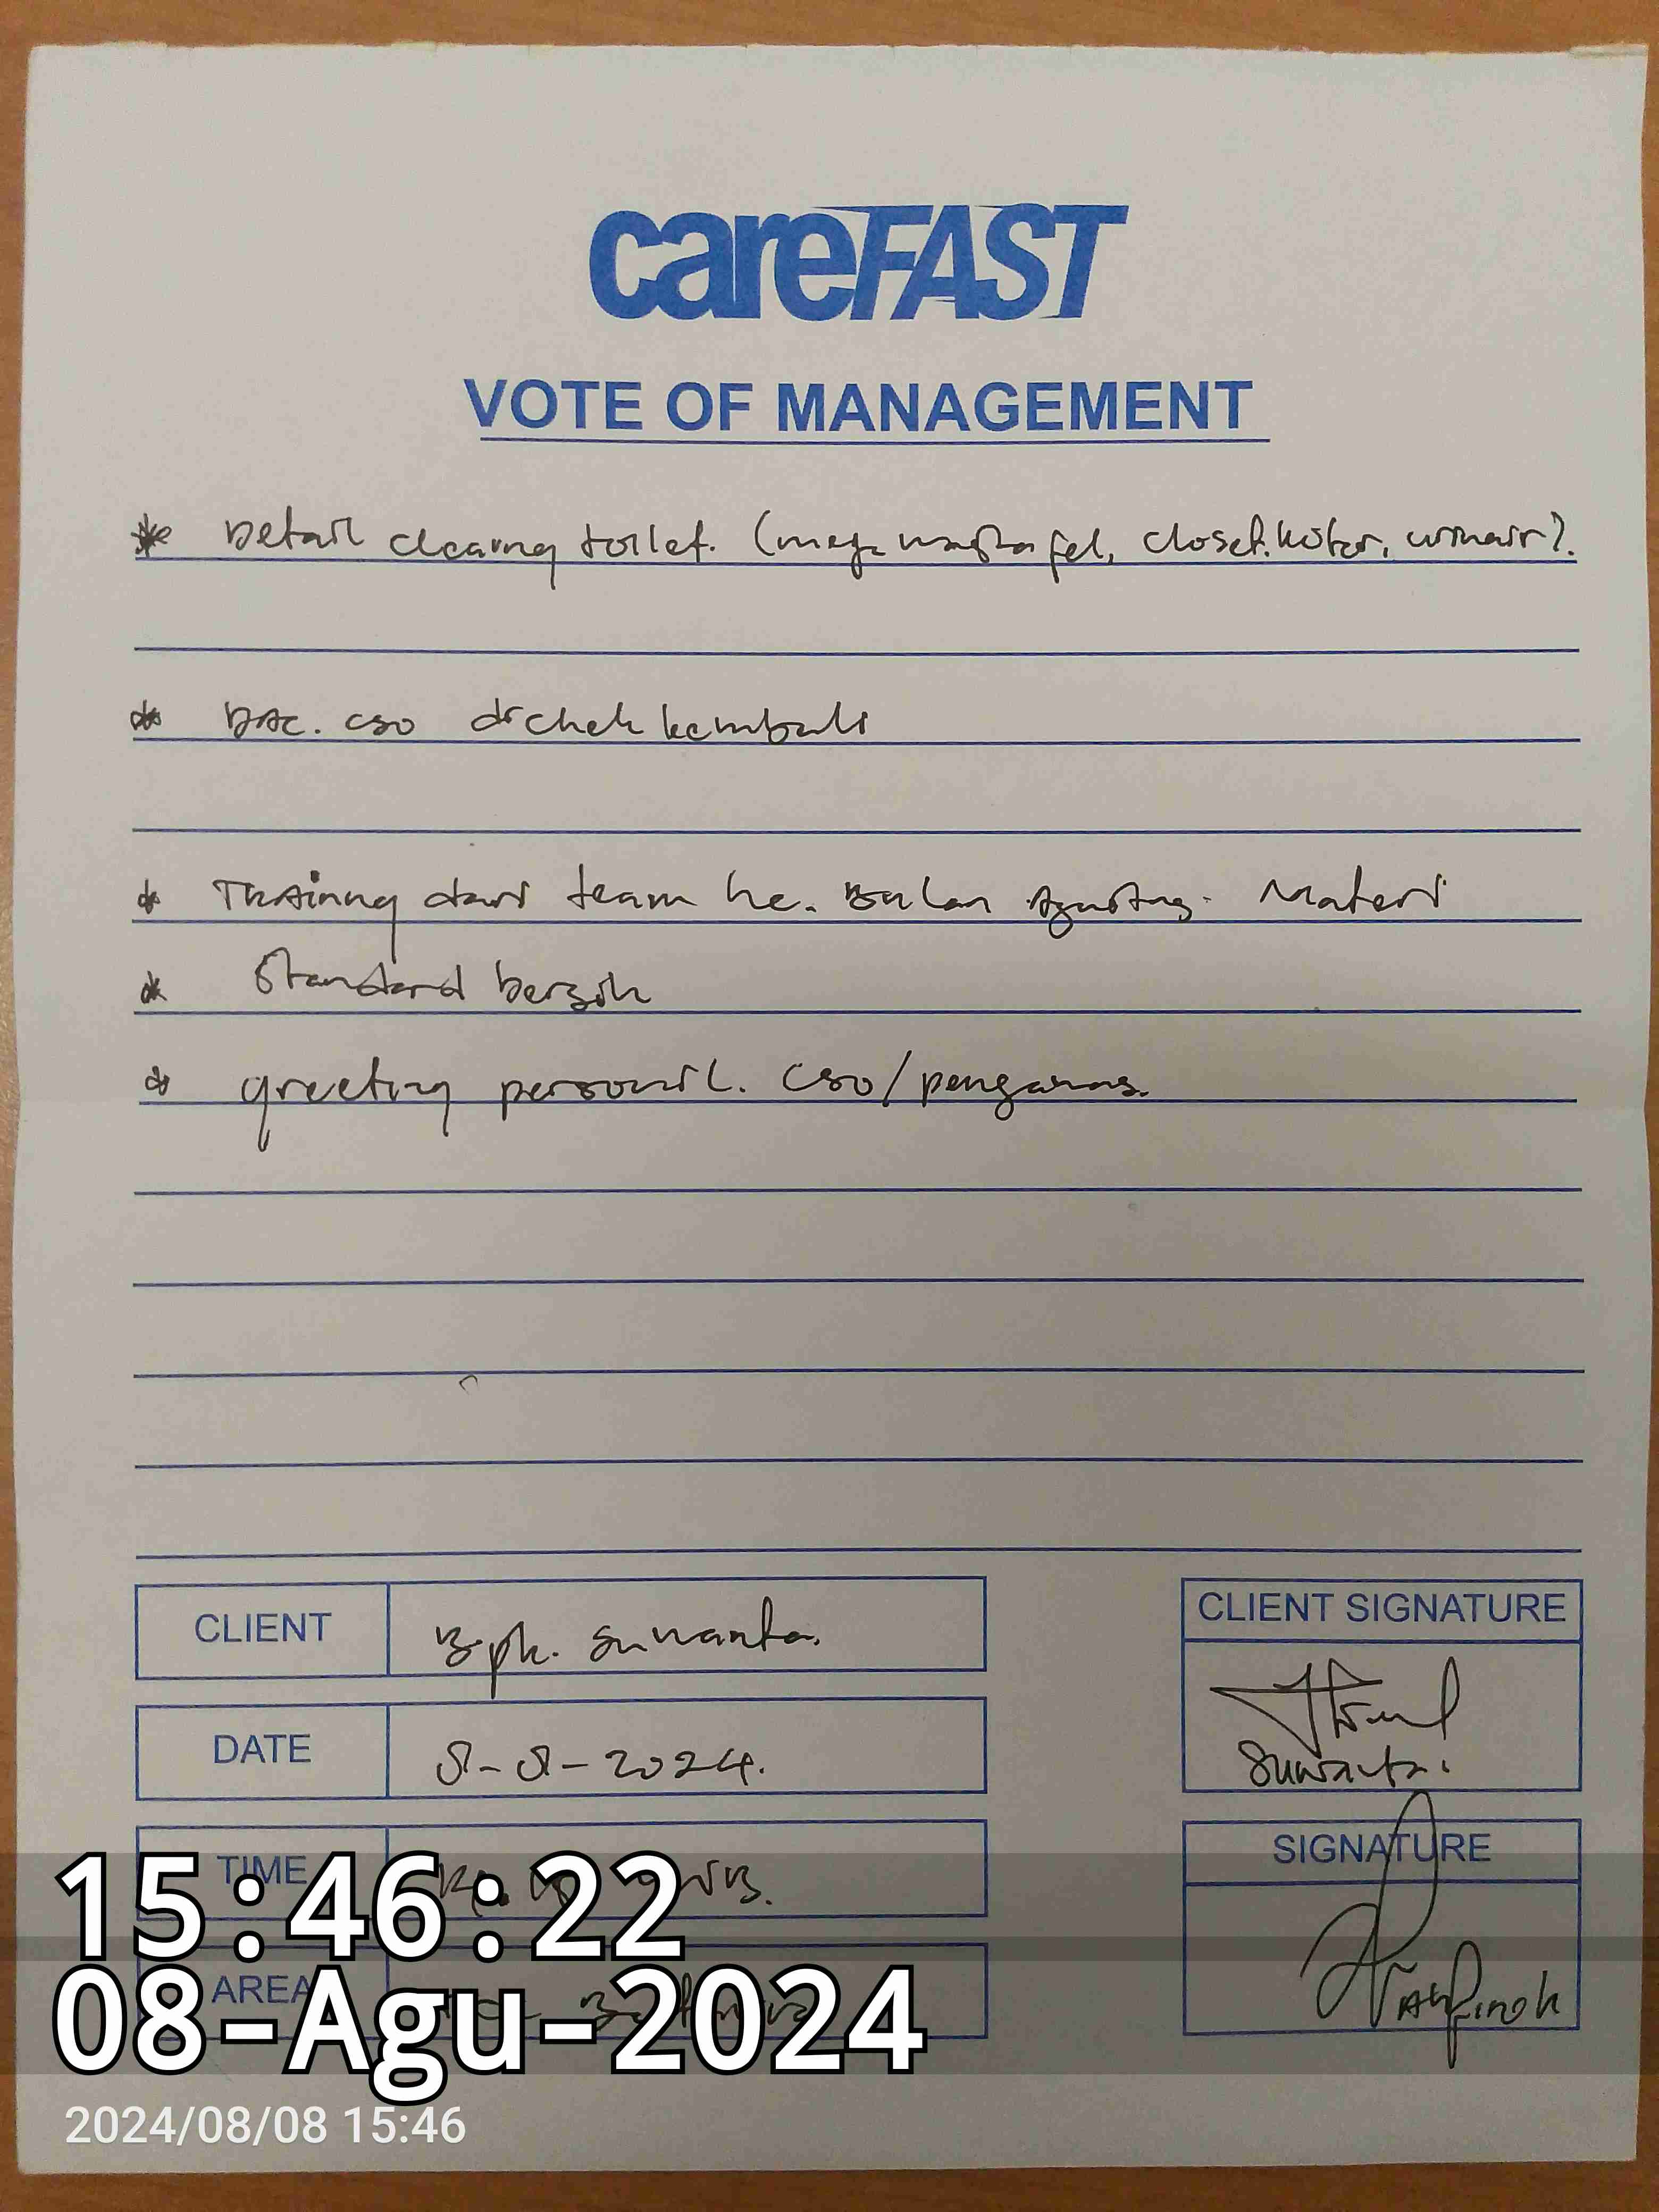 careFAST
VOTE OF MANAGEMENT
* Detail cleaning toilet. (meja wastafel, closet. kotor, urinair).
* cso dichek kembali
* Training dari team hc. Bulan Agustus. Materi
* Standard bersih
* greeting personil. cso/pengawas.
CLIENT Bpk. Suwanta.
DATE 8-8-2024.
TIME
AREA
CLIENT SIGNATURE
Suwanta.
SIGNATURE
15:46:22
08-Agu-2024
2024/08/08 15:46